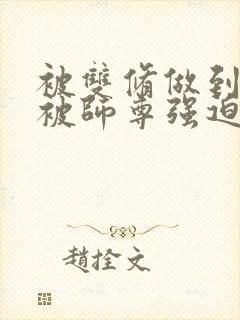 被雙脩做到
被師尊强迫
趙拴文